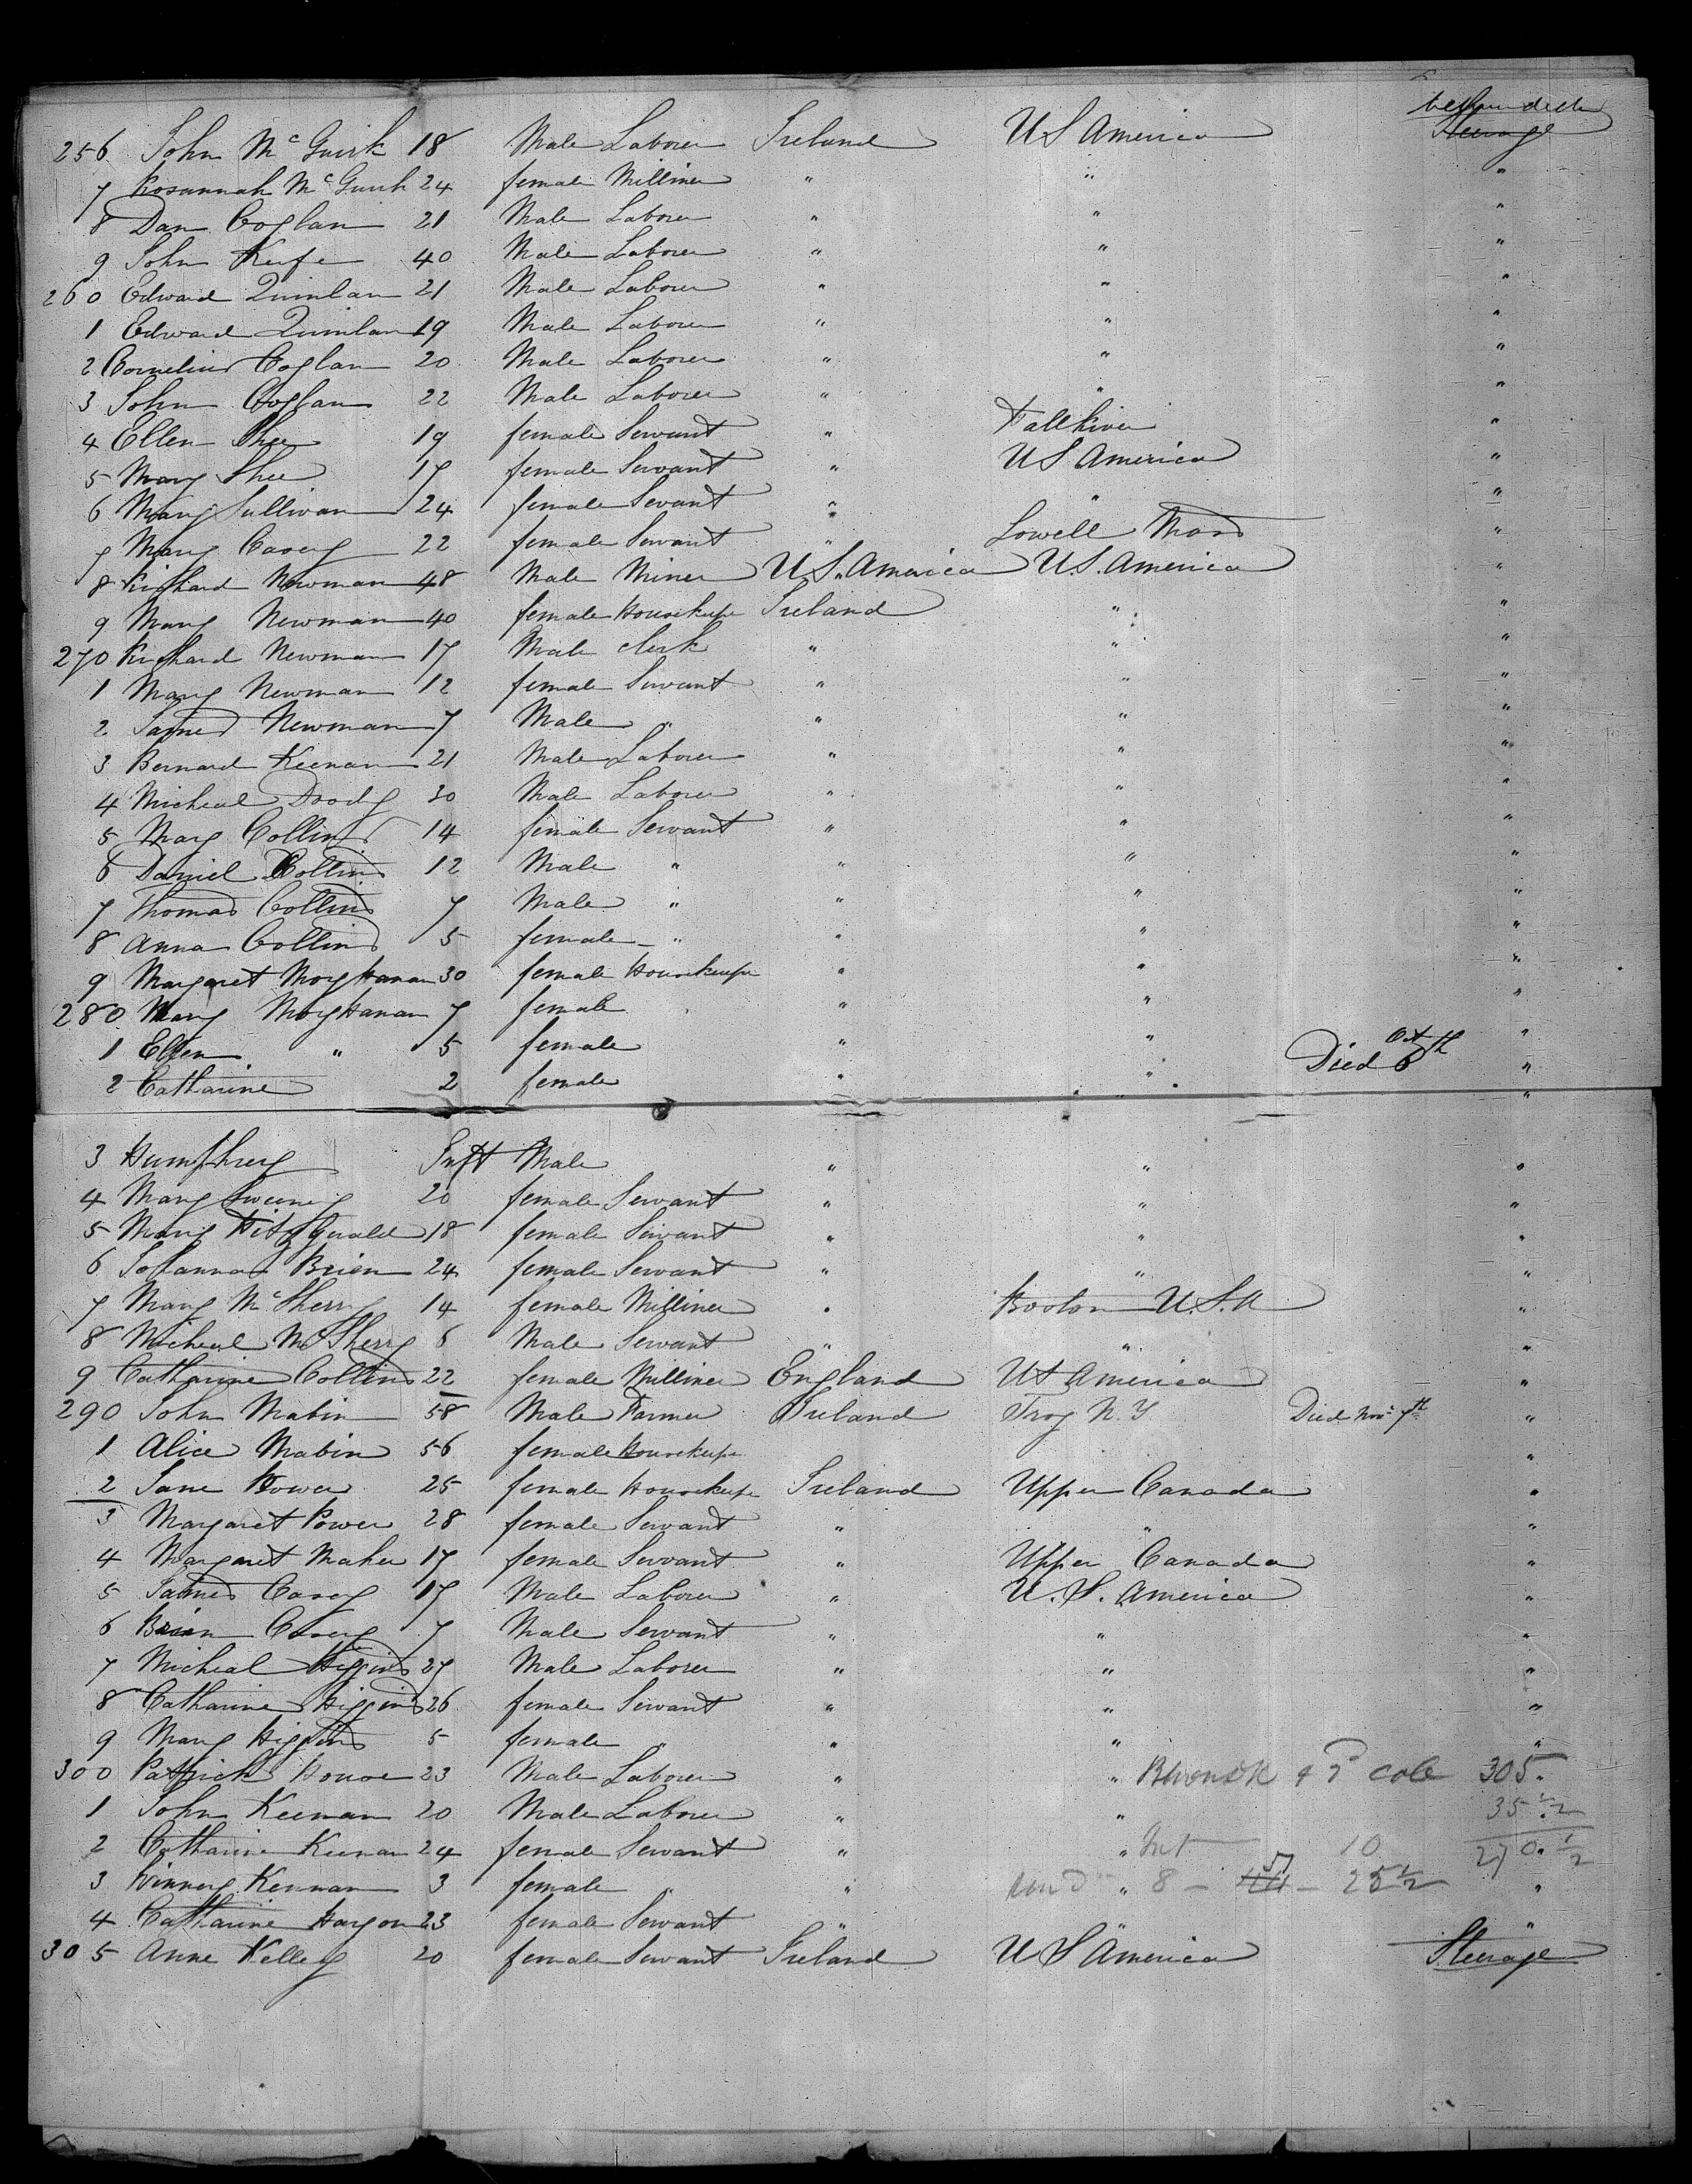 between decks
Steerage
256 John McGuirk 18 Male Laborer Ireland US America
7 Rosannah McGuirk 24 female Milliner " " "
8 Dan Coglan 21 Male Laborer " " "
9 John Keife 40 Male Laborer " " "
260 Edward Quinlan 21 Male Laborer " " "
1 Edward Quinlan 19 Male Laborer " " "
2 Cornelius Coglan 20 Male Laborer " " "
3 John Coglan 22 Male Laborer " " "
4 Ellen Shee 19 female Servant " Fall River "
5 Mary Shee 17 female Servant " US America "
6 Mary Sullivan 24 female Servant " " "
7 Mary Casey 22 female Servant " Lowell Mass "
8 Richard Newman 48 Male Miner U.S. America U.S. America "
9 Mary Newman 40 female Housekeepr Ireland " "
270 Richard Newman 17 Male clerk " " "
1 Mary Newman 12 female Servant " " "
2 James Newman 7 Male " " " "
3 Bernard Keenan 21 Male Laborer " " "
4 Micheal Doody 30 Male Laborer " " "
5 Mary Collins 14 female Servant " " "
6 Daniel Collins 12 Male " " " "
7 Thomas Collins 7 Male " " " "
8 Anna Collins 5 female " " " "
9 Margaret Moyhanan 30 female Housekeepr " " "
280 Mary Moyhanan 7 female " " "
1 Ellen " 5 female " " "
2 Catharine 2 female " " Died Oct 6th "
3 Humphrey Inft Male " " "
4 Mary Sweeney 20 female Servant " " "
5 Mary Fitzgerald 18 female Servant " " "
6 Johanna Brien 24 female Servant " " "
7 Mary McSherry 14 female Milliner " Boston U.S.A "
8 Micheal McSherry 6 Male Servant " " "
9 Catharine Collins 22 female Milliner England US America "
290 John Mabin 58 Male Farmer Ireland Troy N.Y Died Nov. 7th "
1 Alice Mabin 56 female Housekeepr "
2 Jane Power 25 female Housekeepr Ireland Upper Canada "
3 Margaret Power 28 female Servant " " "
4 Margaret Maher 17 female Servant " Upper Canada "
5 James Casey 17 Male Laborer " U.S. America "
6 Brien Casey 7 Male Servant " " "
7 Micheal Higgins 27 Male Laborer " " "
8 Catharine Higgins 26 female Servant " " "
9 Mary Higgins 5 female " " " "
300 Patrick House 23 Male Laborer " " 305
1 John Keenan 20 Male Laborer " " 35 1/2
2 Catharine Keenan 24 female Servant " " Inf 10 270 1/2
3 Kennan 3 female " " " 8 - 25 1/2 "
4 Catharine Hargon 23 female Servant " " "
305 Anne Kelley 20 female Servant Ireland US America Steerage